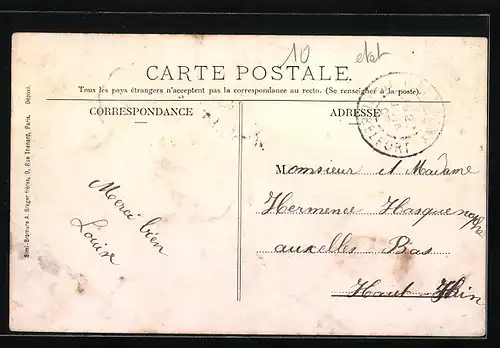 10 etat
CARTE POSTALE.
Tous les pays étrangers n'acceptent pas la correspondance au recto. (Se renseigner à la poste).
CORRESPONDANCE
ADRESSE
BELFORT
Monsieur et Madame
Hermence
auxelles Bas
Haut Rhin
Merci bien
Louise
Simi-Bromure A. Breger frères, 9, Rue Thénard, Paris. Dépost.